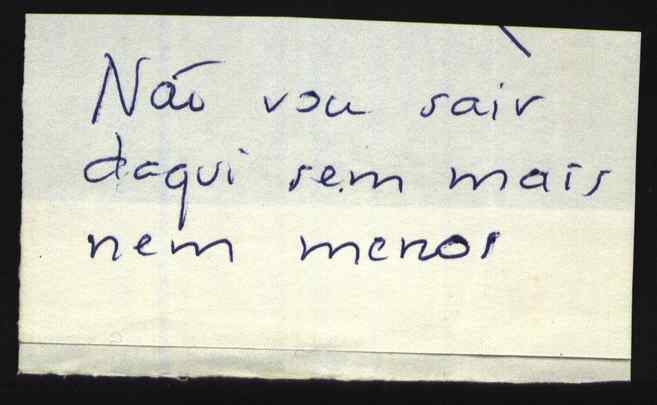 Não vou sair
daqui sem mais
nem menos